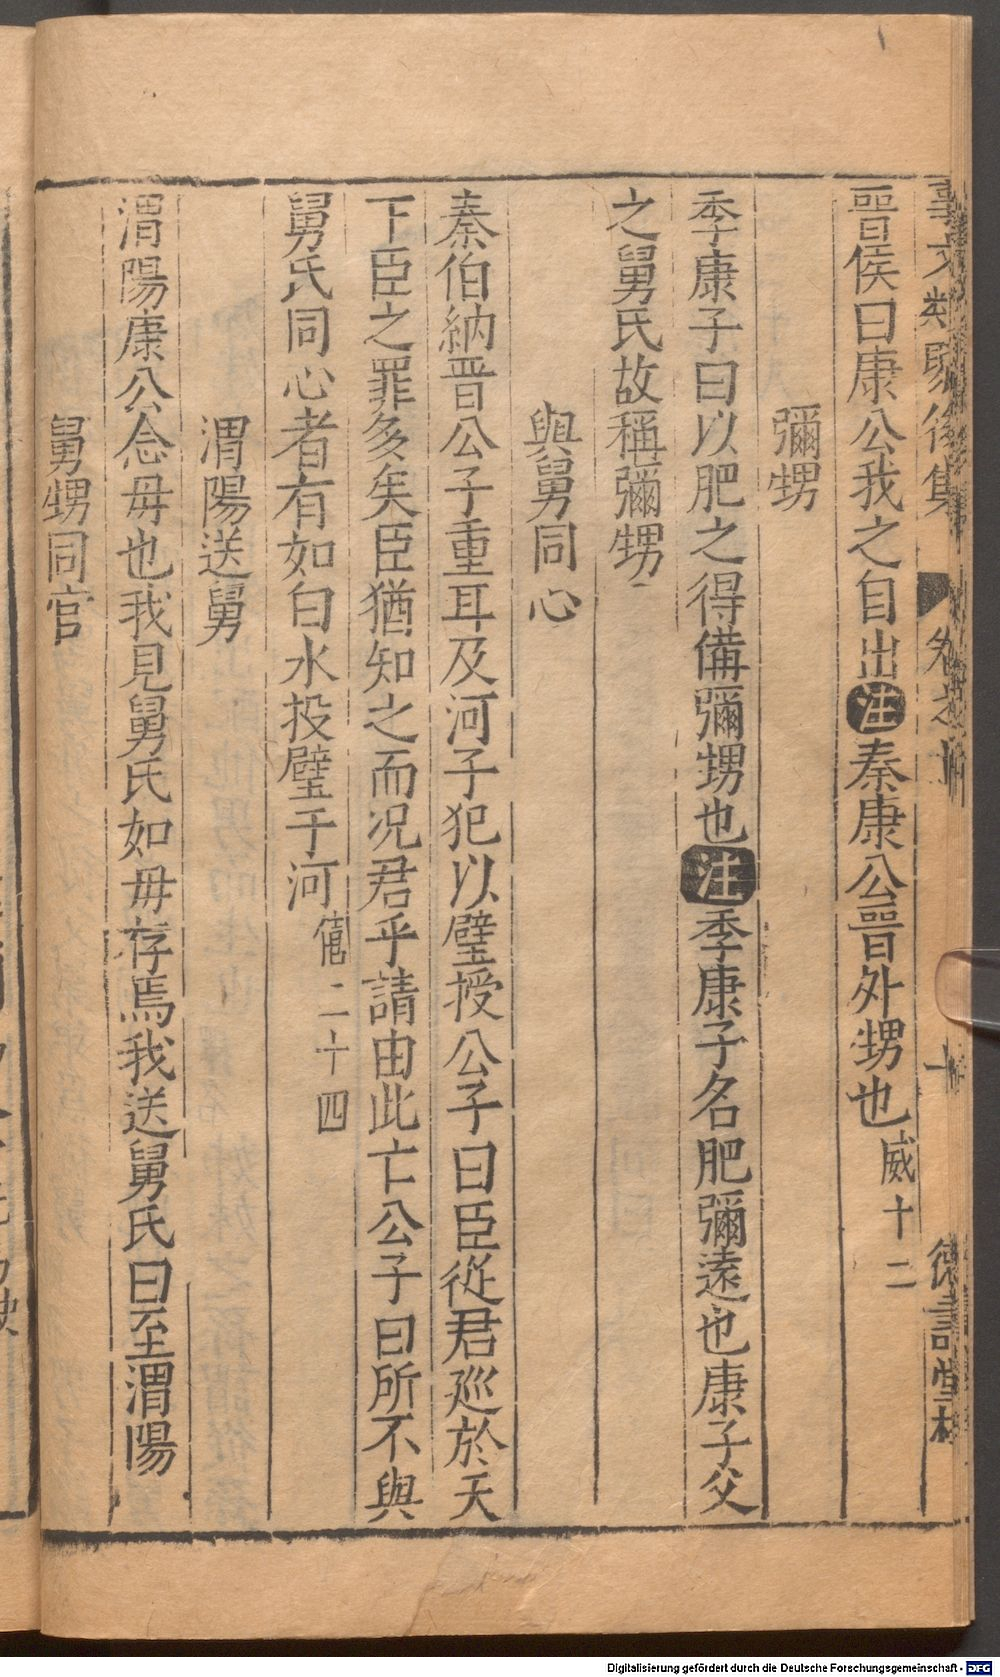 事文類聚後集 卷之十 十 德壽堂梓
晉侯曰康公我之自出注秦康公晉外甥也威十二
彌甥
季康子曰以肥之得備彌甥也注季康子名肥彌遠也康子父
之舅氏故稱彌甥
與舅同心
秦伯納晋公子重耳及河子犯以璧授公子曰臣從君廵於天
下臣之罪多矣臣猶知之而况君乎請由此亡公子曰所不與
舅氏同心者有如白水投璧于河僖二十四
渭陽送舅
渭陽康公念毋也我見舅氏如毋存焉我送舅氏曰至渭陽
舅甥同官
Digitalisierung gefördert durch die Deutsche Forschungsgemeinschaft - DFG